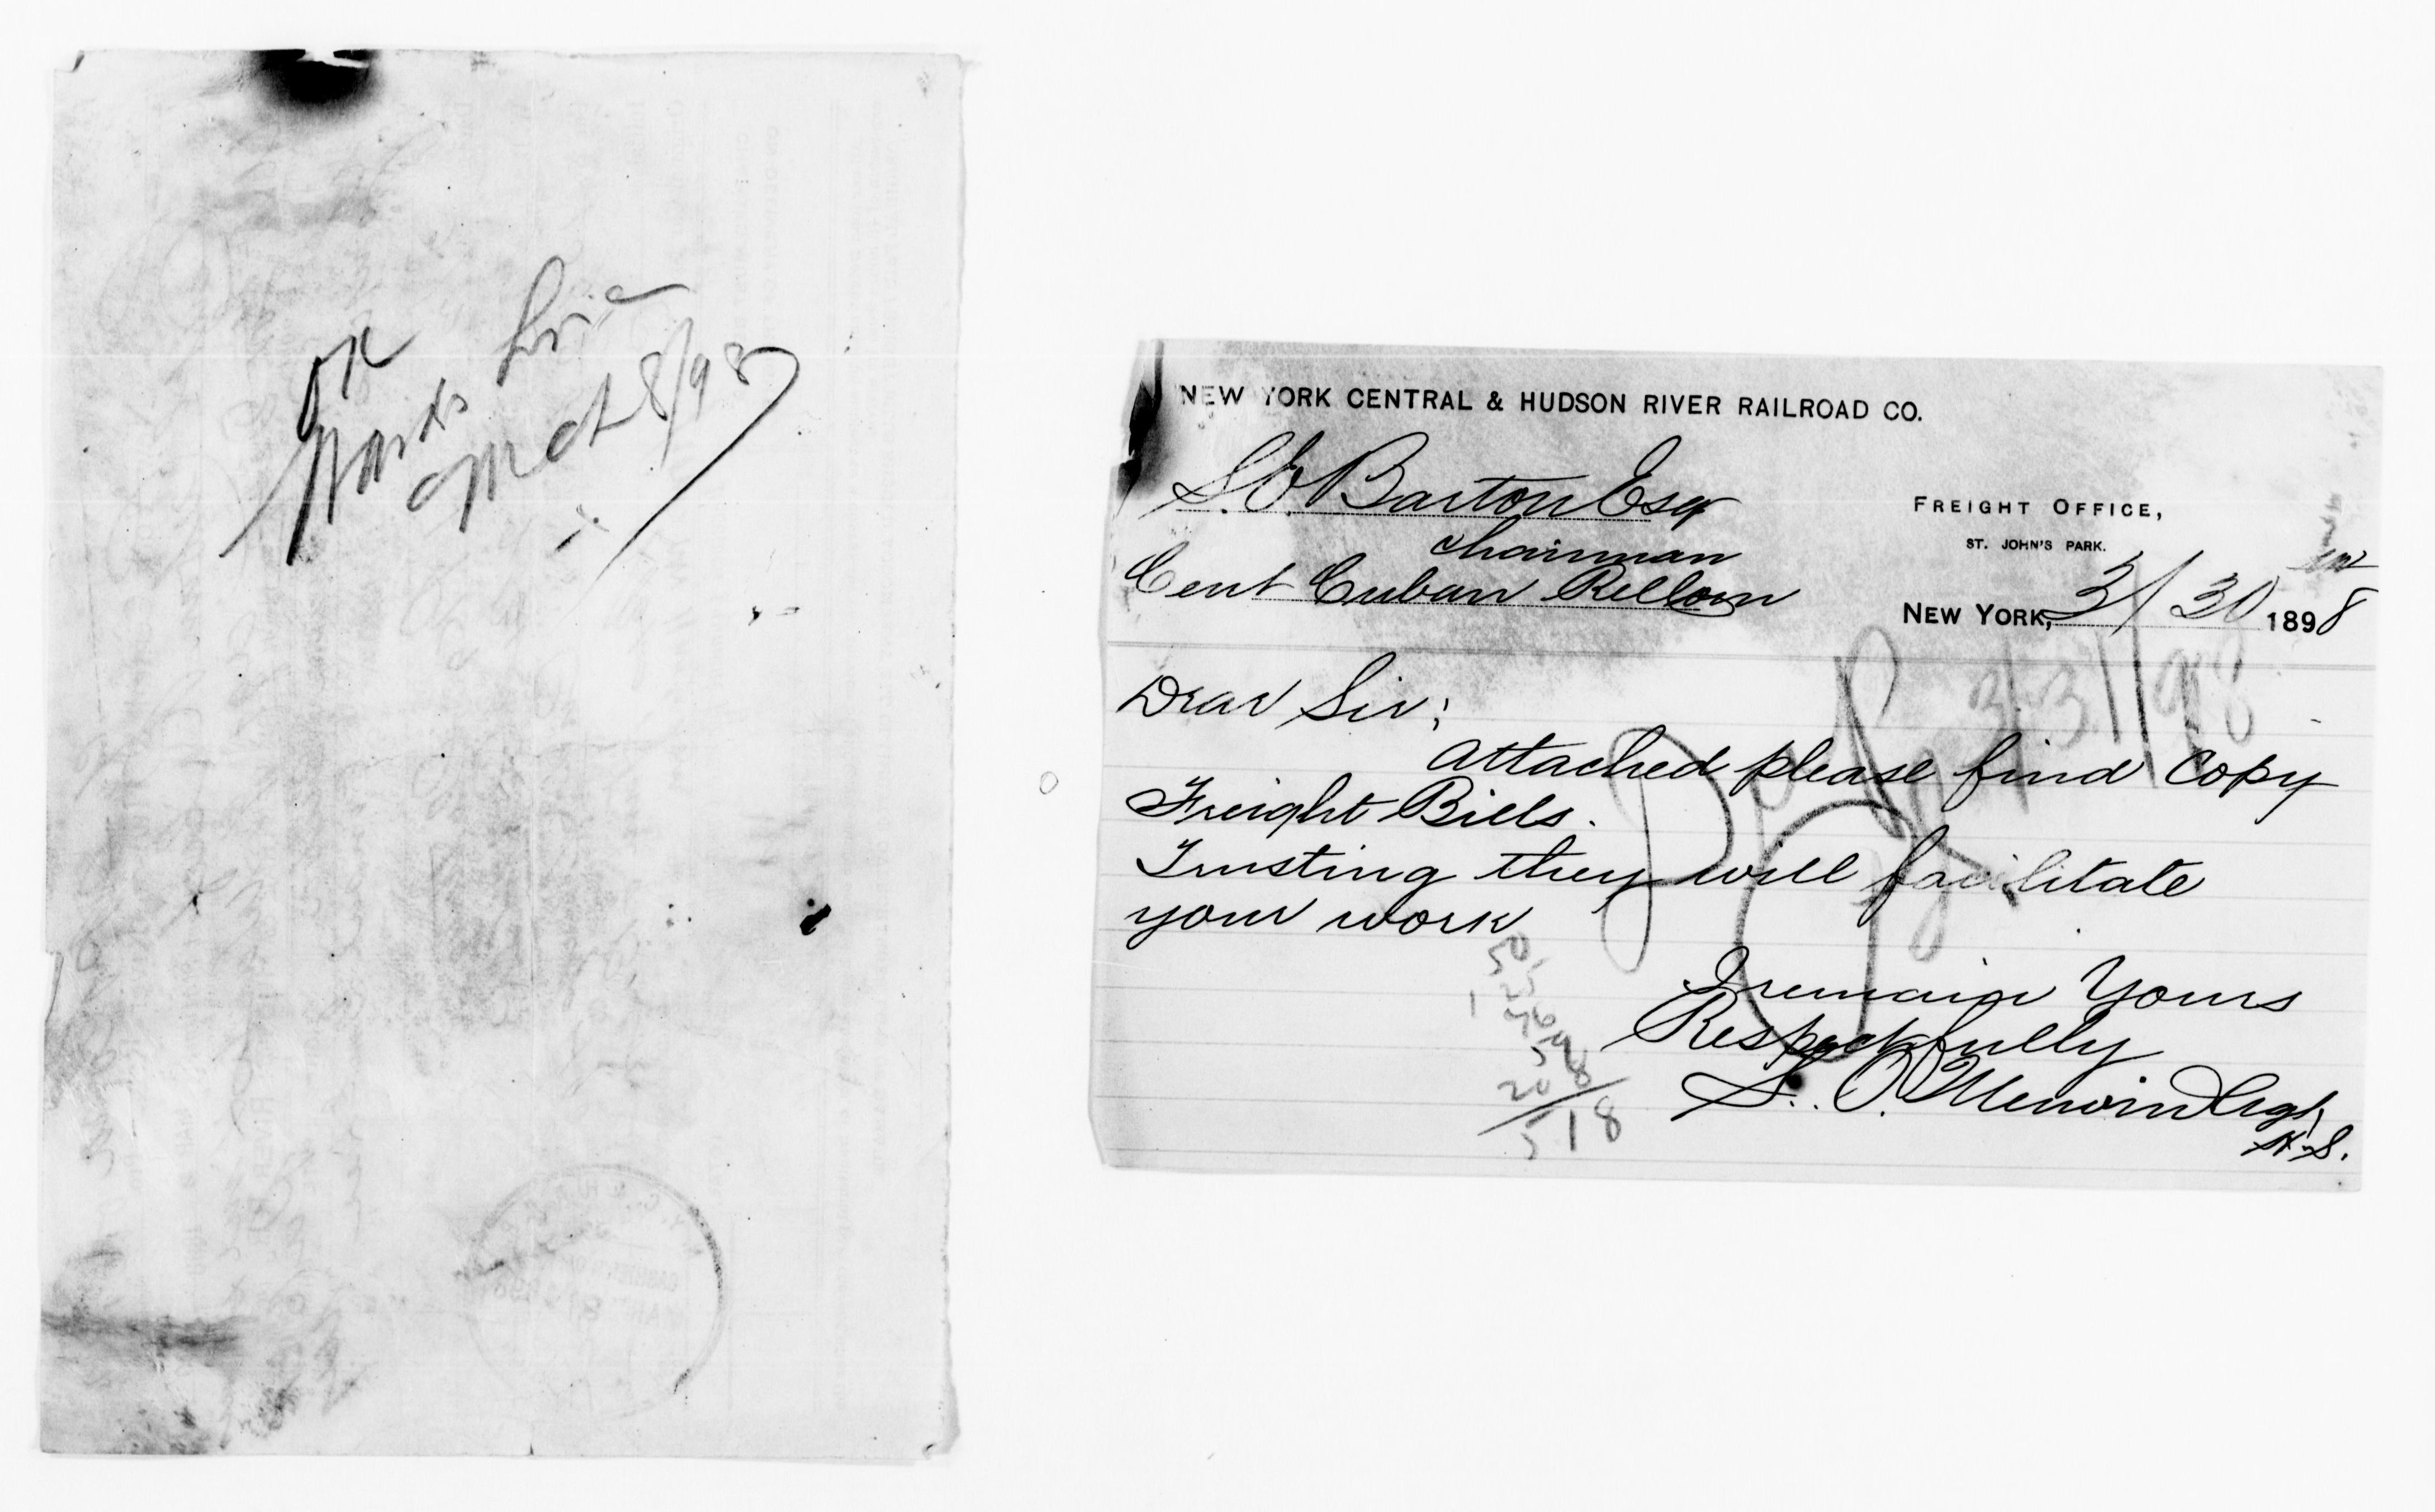 OK
Wards Line
Mch 8/98
NEW YORK CENTRAL & HUDSON RIVER RAILROAD CO.
S. E. Barton Esq
Chairman
Cent Cuban Rel Com
FREIGHT OFFICE,
ST. JOHN'S PARK.
NEW YORK, 3/30 1898
3/31/98
Dear Sir;
Attached please find Copy
Freight Bills.
Trusting they will facilitate
your work
I remain Yours
Respectfully
Agt
H.S.
20
518